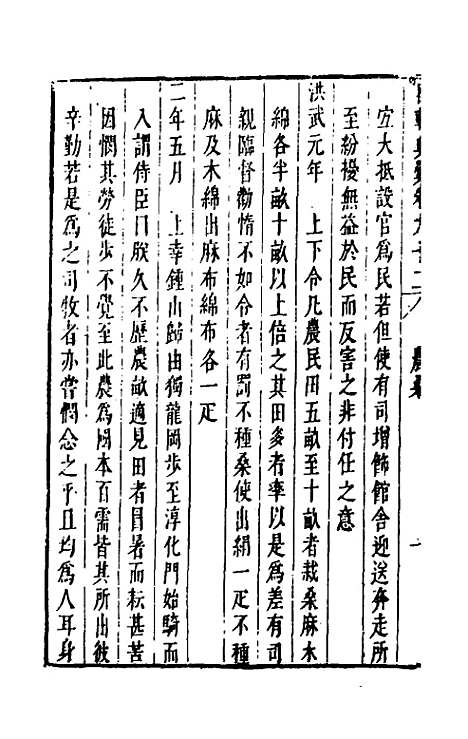 農桑
宜大抵設官爲民若但使有司增飾館舍迎送奔走所
至紛擾無益於民而反害之非付任之意
洪武元年　上下令凡農民田五畝至十畝者栽桑麻木
綿各半畝十畝以上倍之其田多者率以是爲差有司
親臨督勸惰不如令者有罰不種桑使出絹一疋不種
麻及木綿出麻布綿布各一疋
二年五月　上幸鍾山歸由獨龍岡步至淳化門始騎而
入謂侍臣曰朕久不歷農畝適見田者冒暑而耘甚苦
因憫其勞徒步不覺至此農爲國本百需皆其所出彼
辛勤若是爲之司牧者亦嘗憫念之乎且均爲人耳身